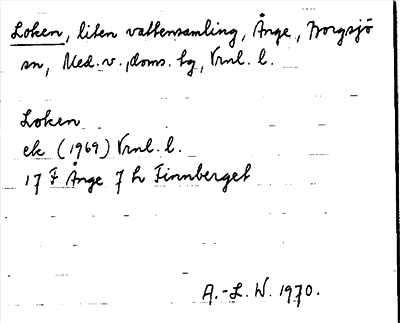 Loken, liten vattensamling, Ånge, Borgsjö
sn, Med.v., doms. hg, Vrnl. l.
Loken
ek (1969) Vrnl. l.
17 F Ånge 7 h Finnberget
A.-L. W. 1970.